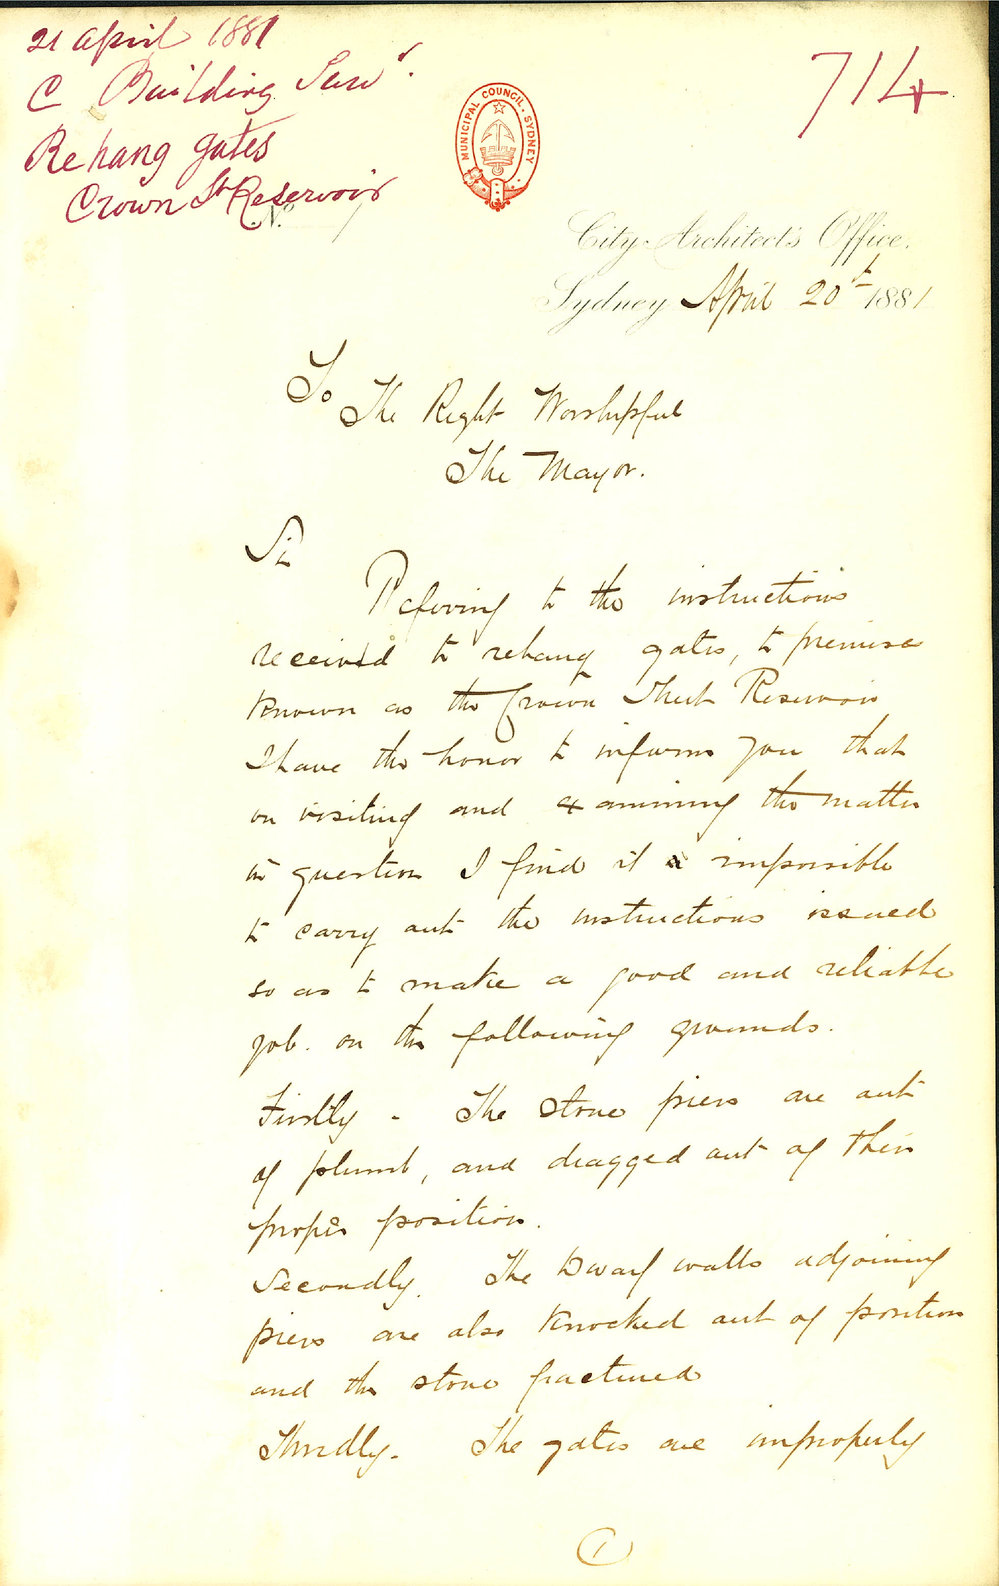 21 April 1881
C Building Surv r.
Rehang gates
Crown St Reservoir
No.
714
MUNICIPAL COUNCIL. SYDNEY
City Architect's Office.
Sydney April 20th 1881
To
The Right Worshipful
The Mayor.
Sir
Refering to the instructions
received to rehang gates, to premises
known as the Crown Street Reservoir
I have the honor to inform you that
on visiting and examining the matter
in question I find it impossible
to carry out the instructions issued
so as to make a good and reliable
job. on the following grounds.
Firstly - The stone piers are out
of plumb, and dragged out of their
proper position.
Secondly. The Dwarf walls adjoining
piers are also knocked out of position
and the stone fractured
Thirdly. The gates are improperly
1